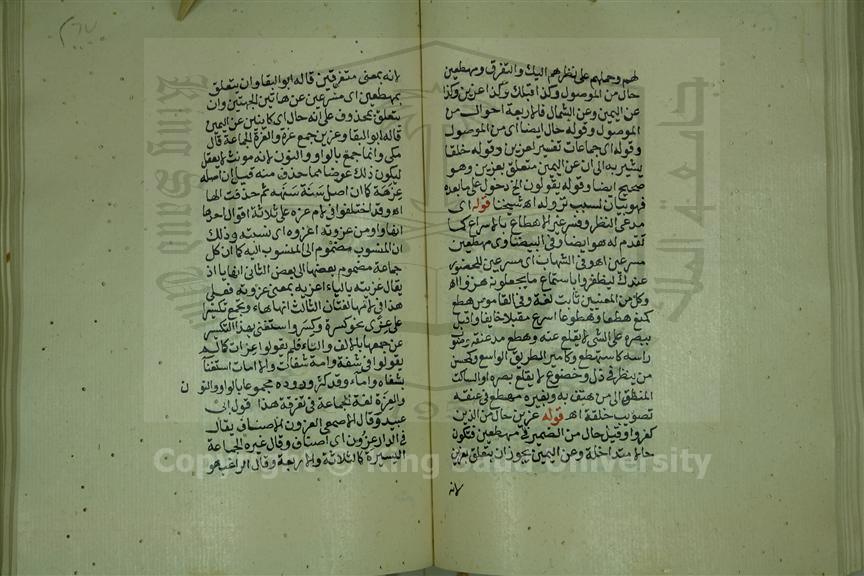 لهم وحملهم على نظرهم اليك والتفرق ومهطعين
حال من الموصول وكذا قبلك وكذا عزين وكذا
عن اليمين وعن الشمال فالاربعة احوال من
الموصول وقوله حال ايضا اى من الموصول
وقوله اى جماعات تفسير لعزين وقوله خلقا
يشير به الى ان عن اليمين متعلق بعزين وهو
صحيح ايضا وقوله يقولون الخ دخول على مابعده
فهو بيان لسبب نزوله اهـ شيخنا قوله اى
مدعى النظر وفسر غيره الاهطاع بالاسراع كما
تقدم له هو ايضا وفى البيضاوى مهطعين
مسرعين اهـ وفى الشهاب اى مسرعين للحضور
عندك ليظفروا باستماع ما يجعلونه هزوا اهـ
وكل من المعنيين ثابت لغة وفى القاموس هطع
كمنع هطعا وهطوعا اسرع مقبلا خايفا واقبل
ببصره على الشى لا يقلع عنه وهطع مد عنقه وصوب
راسه كاستهطع وكامير الطريق الواسع وكمحسن
من ينظر فى ذل وخضوع لا يقلع بصره او الساكت
المنطلق الى من هتف به وبعير مهطع فى عنقه
تصويب خلقة اهـ قوله عزين حال من الذين
كفروا وقيل حال من الضمير فى مهطعين فتكون
حالا متداخلة وعن اليمين يجوز ان يتعلق بعزين
لانه
لانه بمعنى متفرقين قاله ابو البقا وان يتعلق
بمهطعين اى مسرعين عن هاتين الجهتين وان
يتعلق بمحذوف على انه حال اى كاينين عن اليمين
قاله ابو البقا وعزين جمع عزة والعزة الجماعة قال
مكى وانما جمع بالواو والنون لانه مونث لا يعقل
ليكون ذلك عوضا مما حذف منه قيل ان اصله
عزهة كما ان اصل سنة سنهة ثم حذفت الها
اهـ وقد اختلفوا فى لام عزه على ثلاثة اقوال احدها
انها واو من عزوته اعزوه اى نسبته وذلك
ان المنسوب مضموم الى المنسوب اليه كما ان كل
جماعة مضموم بعضها الى بعض الثانى انها يا اذ
يقال عزيته بالياء اعزيه بمعنى عزوته فعلى
هذا فى لامها لغتان الثالث انها هاء وتجمع تكسيرا
على عزى نحو كسرة وكسر واستغنى بهذا التكسير
عن جمعها بالالف والتاء فلم يقولوا عزات كما لم
يقولوا فى شفة وامة شفات ولا امات استغناء
بشفاه وامآء وقد كثر وروده مجموعا بالواو والنون
والعزة لغة الجماعة فى تفرقة هذا قول ابى
عبيد وقال الاصمعى العزون الاصناف يقال
فى الدار عزون اى اصناف وقال غيره الجماعة
اليسيرة كالثلاثة والاربعة وقال الراغب هو
Copyright © King Saud University
King Saud University